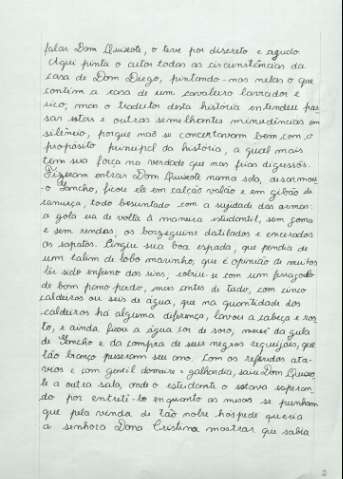 falar Dom Quixote, o teve por discreto e agudo.
Aqui pinta o autor todas as circunstâncias da
casa de Dom Diego, pintando-nos nelas o que
contém a casa de um cavaleiro lavrador e
rico, mas o tradutor desta história entendeu pas
sar estas e outras semelhantes minudências em
silêncio, porque não se concertavam bem com o
propósito principal da história, a qual mais
tem sua força na verdade que nas frias digressões.
Fizeram entrar Dom Quixote numa sala, desarmou
o Sancho, ficou ele em calção valão e em gibão de
camurça, todo besuntado com a sujidade das armas:
a gola era de volta à maneira estudantil, sem goma
e sem rendas, os borzeguins datilados e encerados
os sapatos. Cingiu sua boa espada, que pendia de
um talim de lobo marinho, que é opinião de muitos
ter sido enfermo dos rins, cobriu-se com um ferragoulo
de bom pano pardo, mas antes de tudo, com cinco
caldeiros ou seis de água, que na quantidade dos
caldeiros há alguma diferença, lavou a cabeça e ros
to, e ainda ficou a água cor de soro, mercê da gula
de Sancho e da compra de seus negros requeijões, que
tão branco puseram seu amo. Com os referidos ata-
vios e com gentil donaire e galhardia, saiu Dom Quixo
te a outra sala, onde o estudante o estava esperan
do por entretê-lo enquanto as mesas se punham
que pela vinda de tão nobre hóspede queria
a senhora Dona Cristina mostrar que sabia